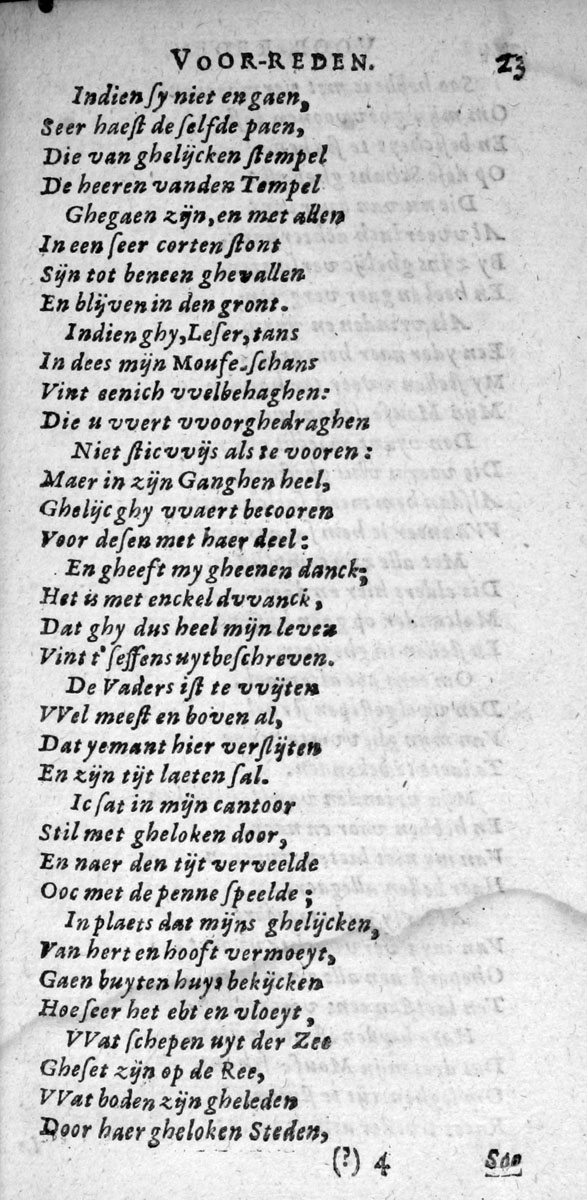 VOOR-REDEN. 23
Indien ſy niet en gaen,
Seer haeſt de ſelfde paen,
Die van ghelijcken ſtempel
De heeren vanden Tempel
Ghegaen zijn, en met allen
In een ſeer corten ſtont
Sijn tot beneen ghevallen
En blijven in den gront.
Indien ghy, Leſer, tans
In dees mijn Mouſe-ſchans
Vint eenich vvelbehaghen:
Die u vvert vvoorghedraghen
Niet ſticvvijs als te vooren:
Maer in zijn Ganghen heel,
Ghelijc ghy vvaert becooren
Voor deſen met haer deel:
En gheeft my gheenen danck;
Het is met enckel dvvanck,
Dat ghy dus heel mijn leven
Vint t'ſeffens uytbeſchreven.
De Vaders iſt te vvijten
VVel meeſt en boven al,
Dat yemant hier verſlijten
En zijn tijt laeten ſal.
Ic ſat in mijn cantoor
Stil met gheloken door,
En naer den tijt verveelde
Ooc met de penne ſpeelde;
In plaets dat mijns ghelijcken,
Van hert en hooft vermoeyt,
Gaen buyten huys bekijcken
Hoe ſeer het ebt en vloeyt,
VVat ſchepen uyt der Zee
Gheſet zijn op de Ree,
VVat boden zijn gheleden
Door haer gheloken Steden,
(?) 4 Soo